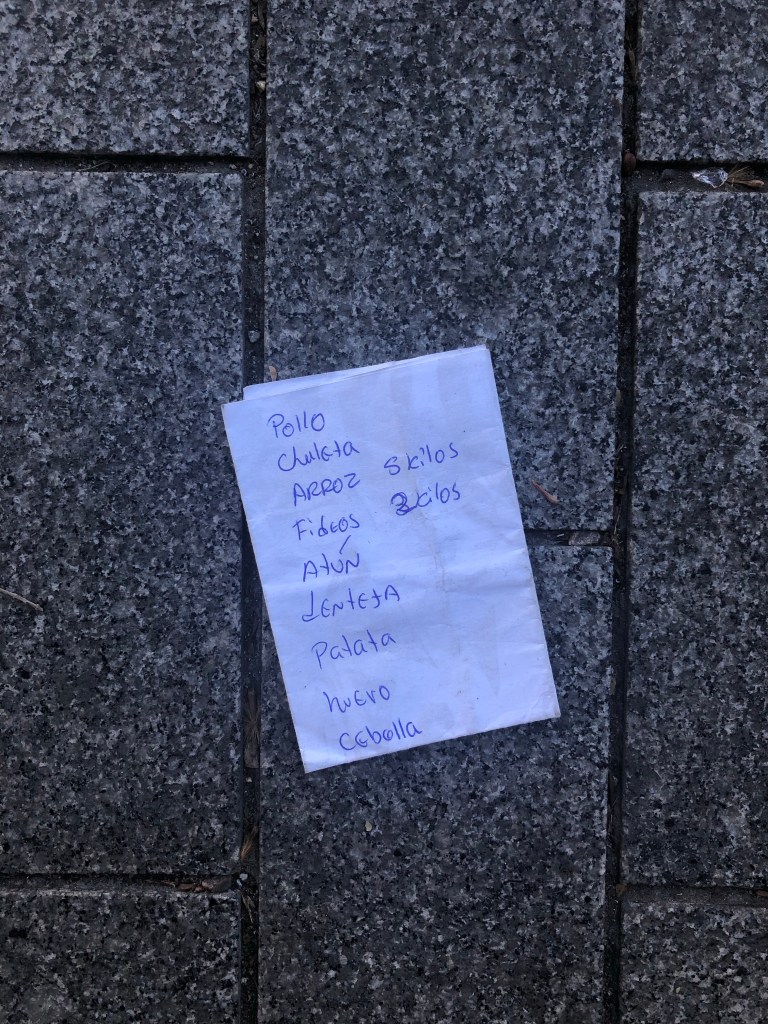 Pollo
Chuleta
ARROZ 5 kilos
FidEOS 2 kilos
Atún
LENtEjA
Patata
huEvo
CEbolla